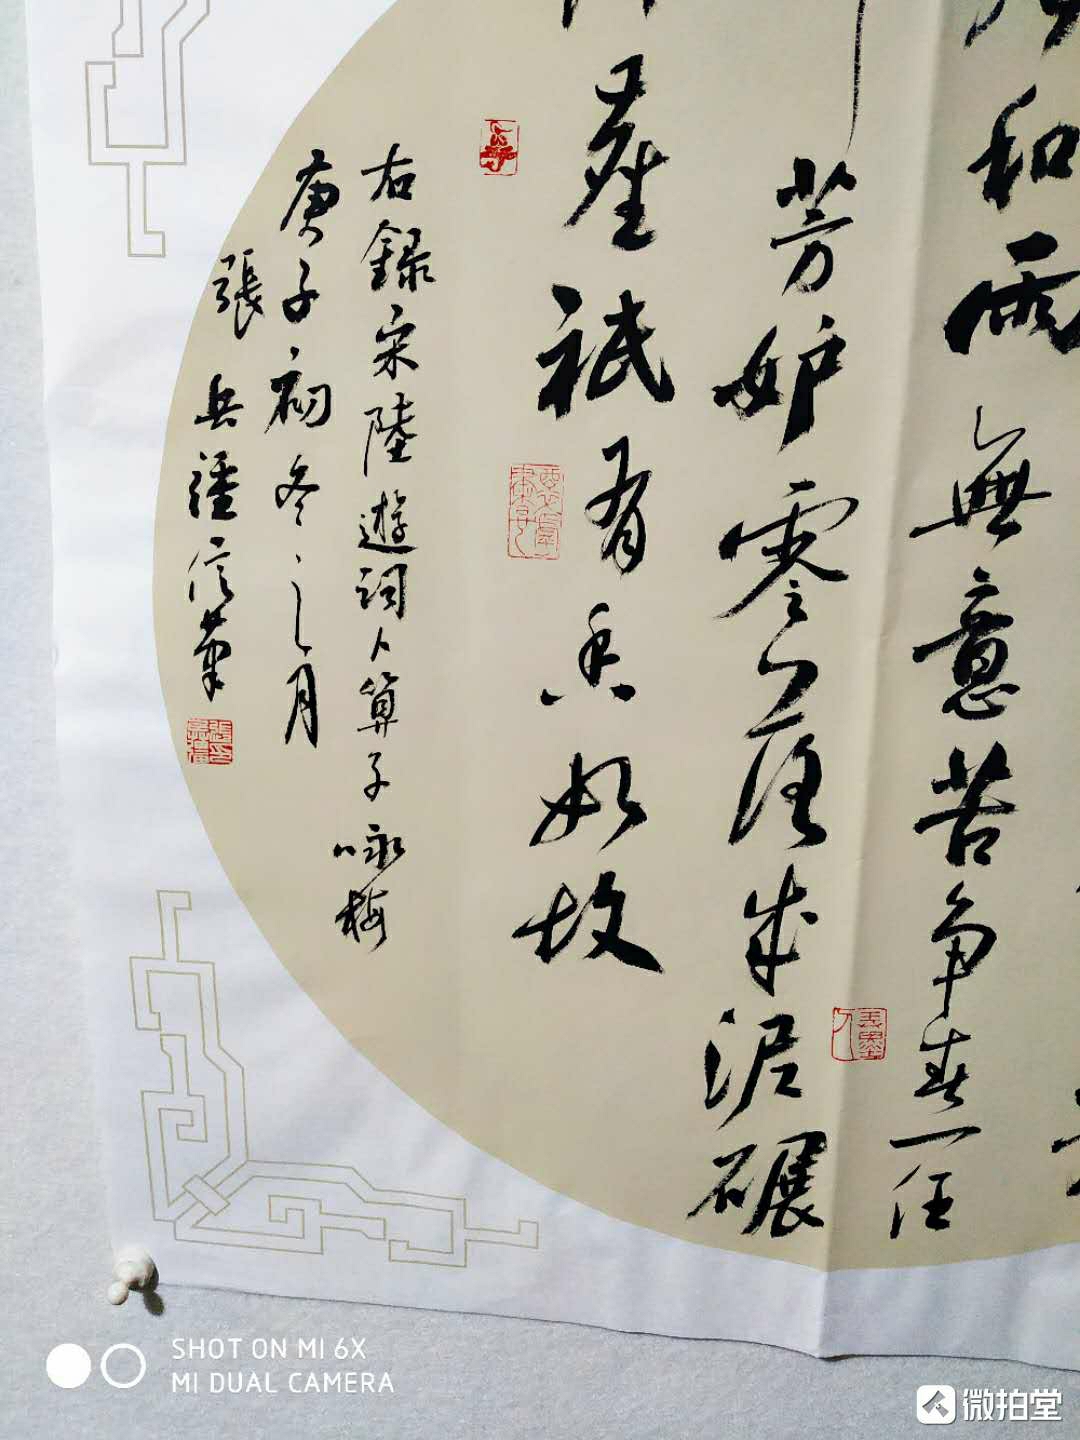 和雨
無意苦争春一任
芳妒零落成泥碾
塵祇有香如故
右録宋陸遊詞卜算子咏梅
庚子初冬之月
張兵疆信筆
SHOT ON MI 6X
MI DUAL CAMERA
微拍堂